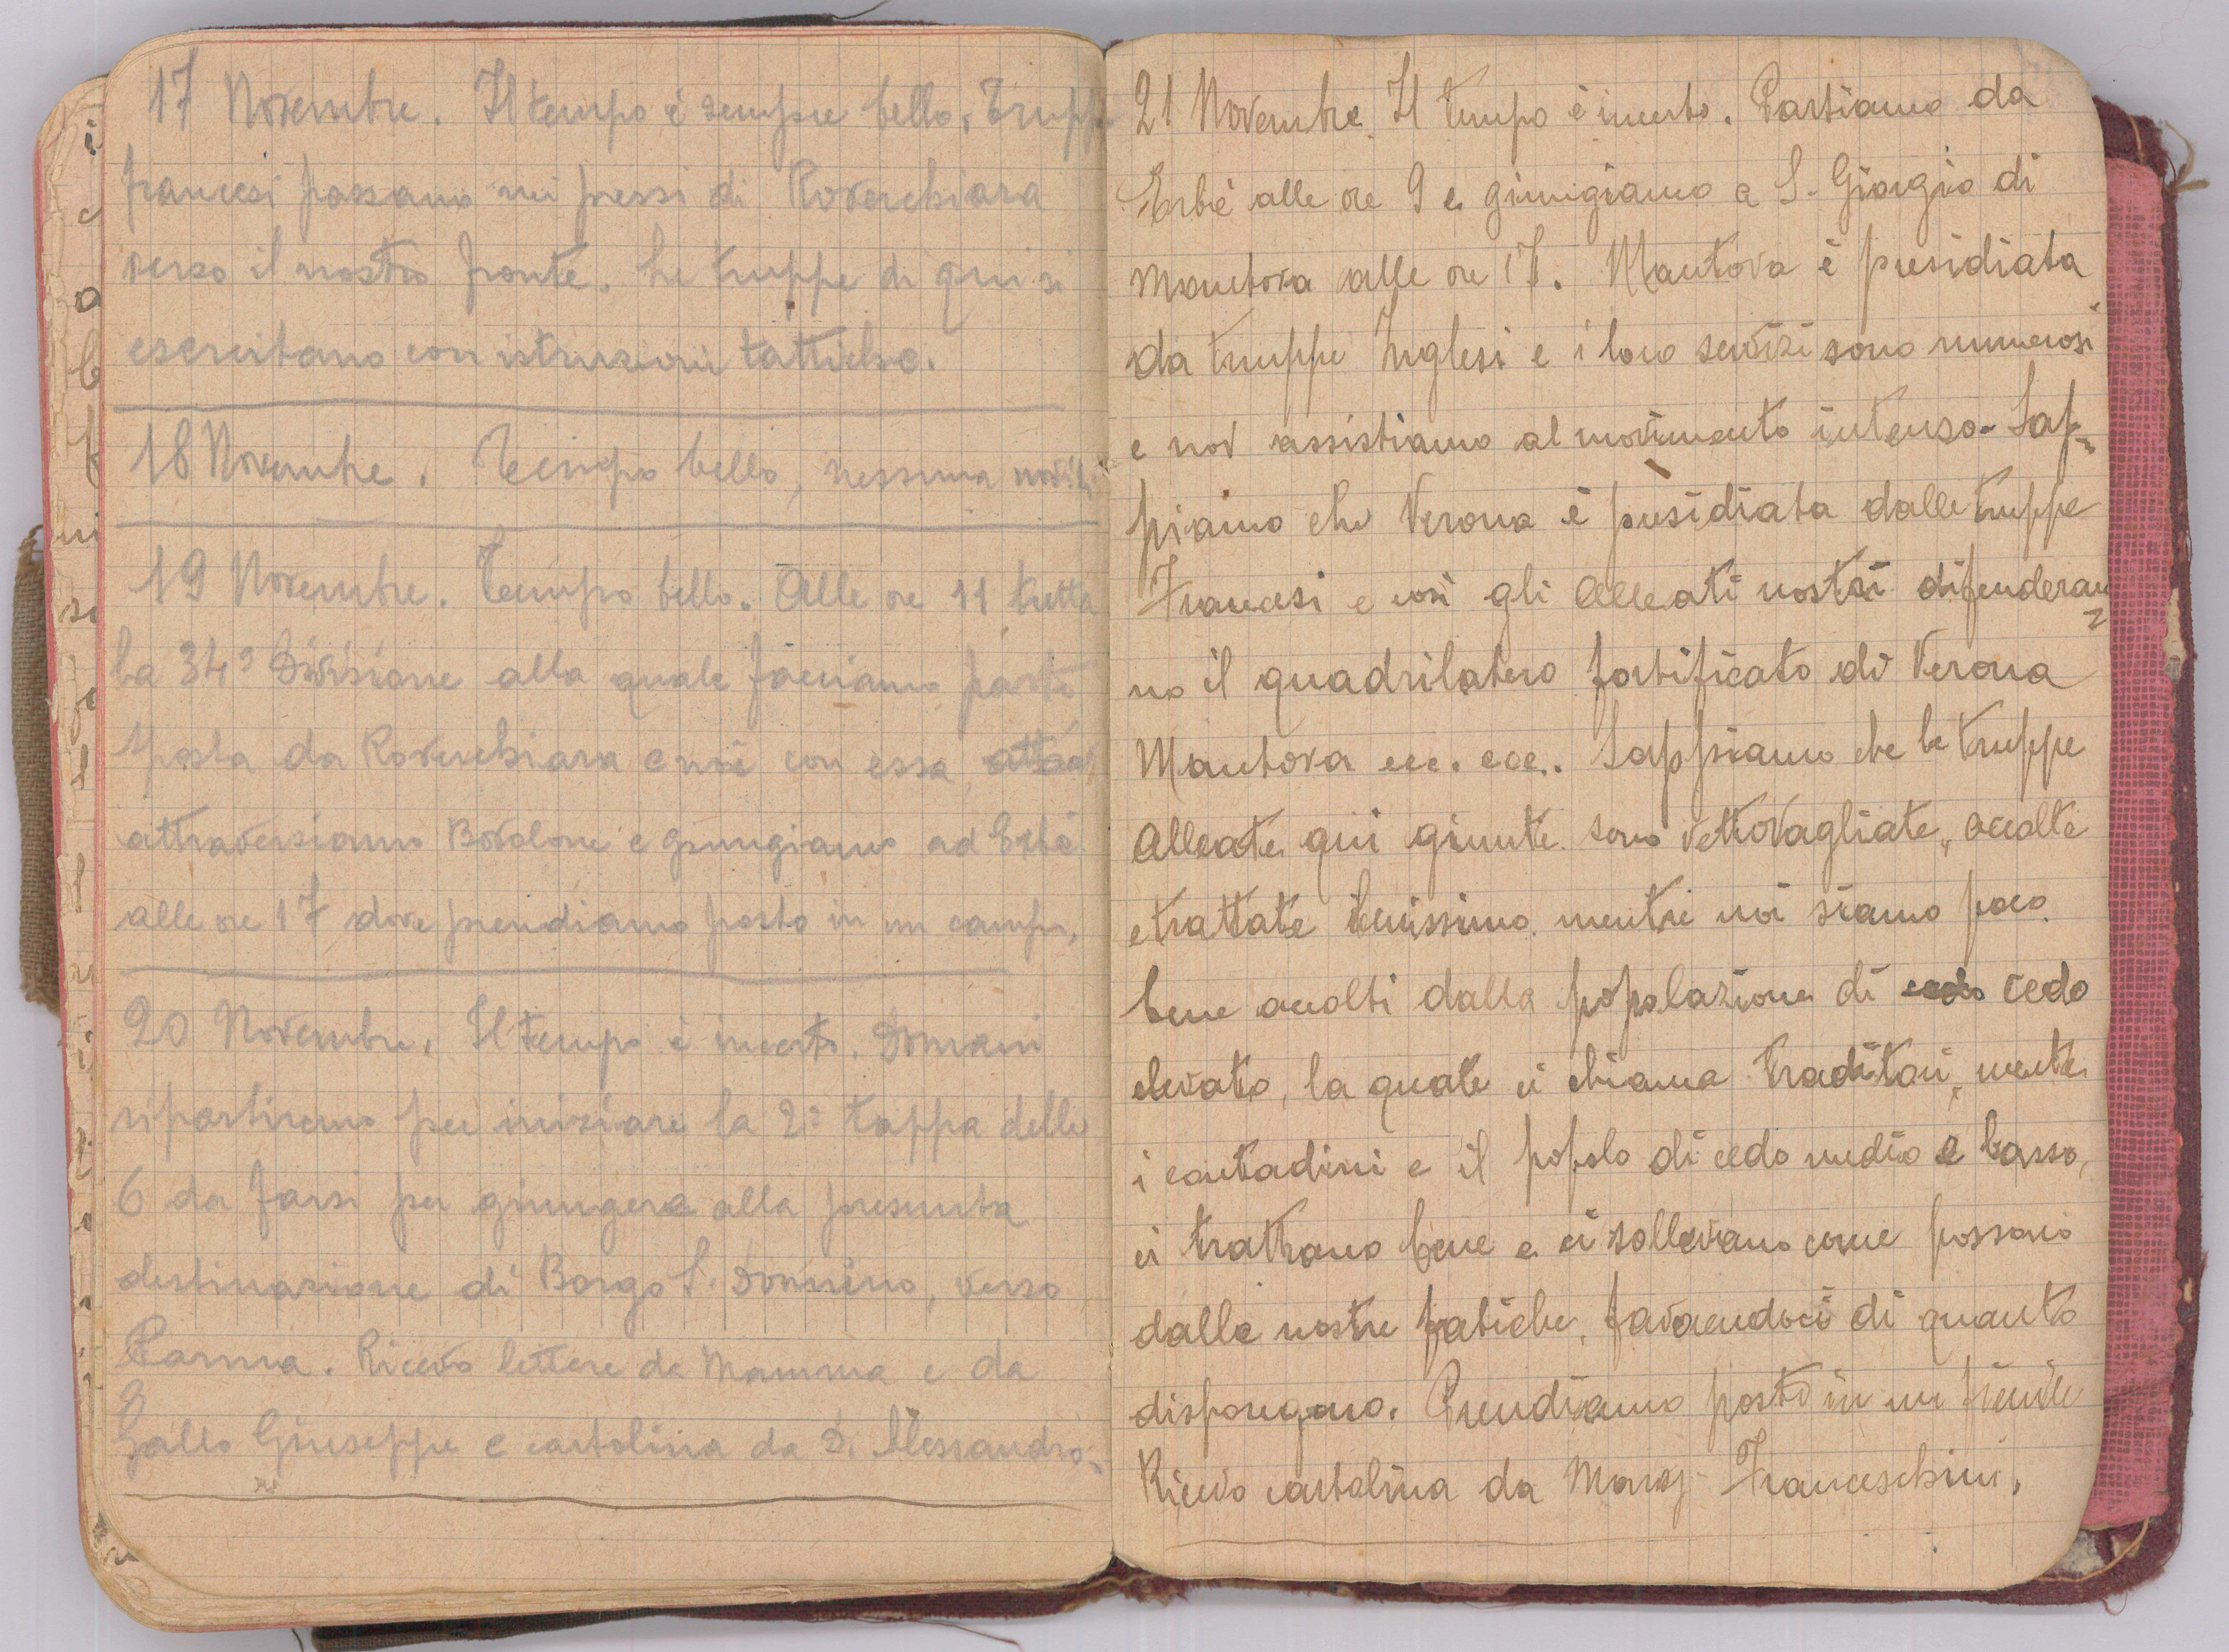 17 Novembre. Il tempo è sempre bello. Trupp
francesi passano nei pressi di Roverchiara
verso il nostro fronte. Le truppe di qui si
esercitano con istruzioni tattiche.
18 Novembre. Tempo bello, nessuna novità
19 Novembre. Tempo bello. Alle ore 11 tutta
la 34ª Divisione alla quale facciamo parte
sposta da Roverchiara e noi con essa
attraversiamo Bovolone e giungiamo ad Erbè
alle ore 17 dove prendiamo posto in un campo.
20 Novembre. Il tempo è incerto. Domani
ripartiremo per iniziare la 2ª tappa delle
6 da farsi per giungere alla presunta
destinazione di Borgo S. Donnino, verso
Parma. Ricevo lettere da Mamma e da
Gallo Giuseppe e cartolina da D. Alessandro.
21 Novembre. Il tempo è incerto. Partiamo da
Erbè alle ore 9 e giungiamo a S. Giorgio di
Mantova alle ore 17. Mantova è presidiata
da truppe Inglesi e i loro servizi sono numerosi
e noi assistiamo al movimento intenso. Sap=
piamo che Verona è presidiata dalle truppe
Francesi e così gli Alleati nostri difenderan=
no il quadrilatero fortificato di Verona
Mantova ecc. ecc.. Sappiamo che le truppe
Alleate qui giunte sono vettovagliate, accolte
e trattate benissimo mentre noi siamo poco
bene accolti dalla popolazione di cedo
elevato, la quale ci chiama traditori, mentre
i contadini e il popolo di cedo medio e basso,
ci trattano bene e ci sollevano come possono
dalle nostre fatiche, favorendoci di quanto
dispongono. Prendiamo posto in un fienile
Ricevo cartolina da Franceschini.